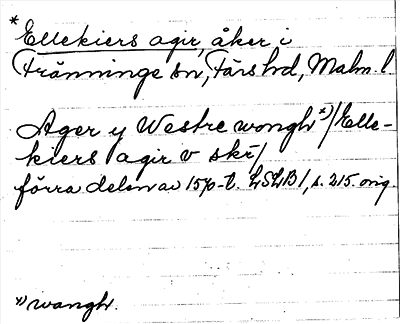 * Ellekiers agir, åker i
Tränninge sn, Färs hd, Malm. l.
Ager y Westre wongh x) / Elle-
kiers agir v skr /
förra delen av 15/0-t. LSLB 1, s. 215. orig.
x) wangh.